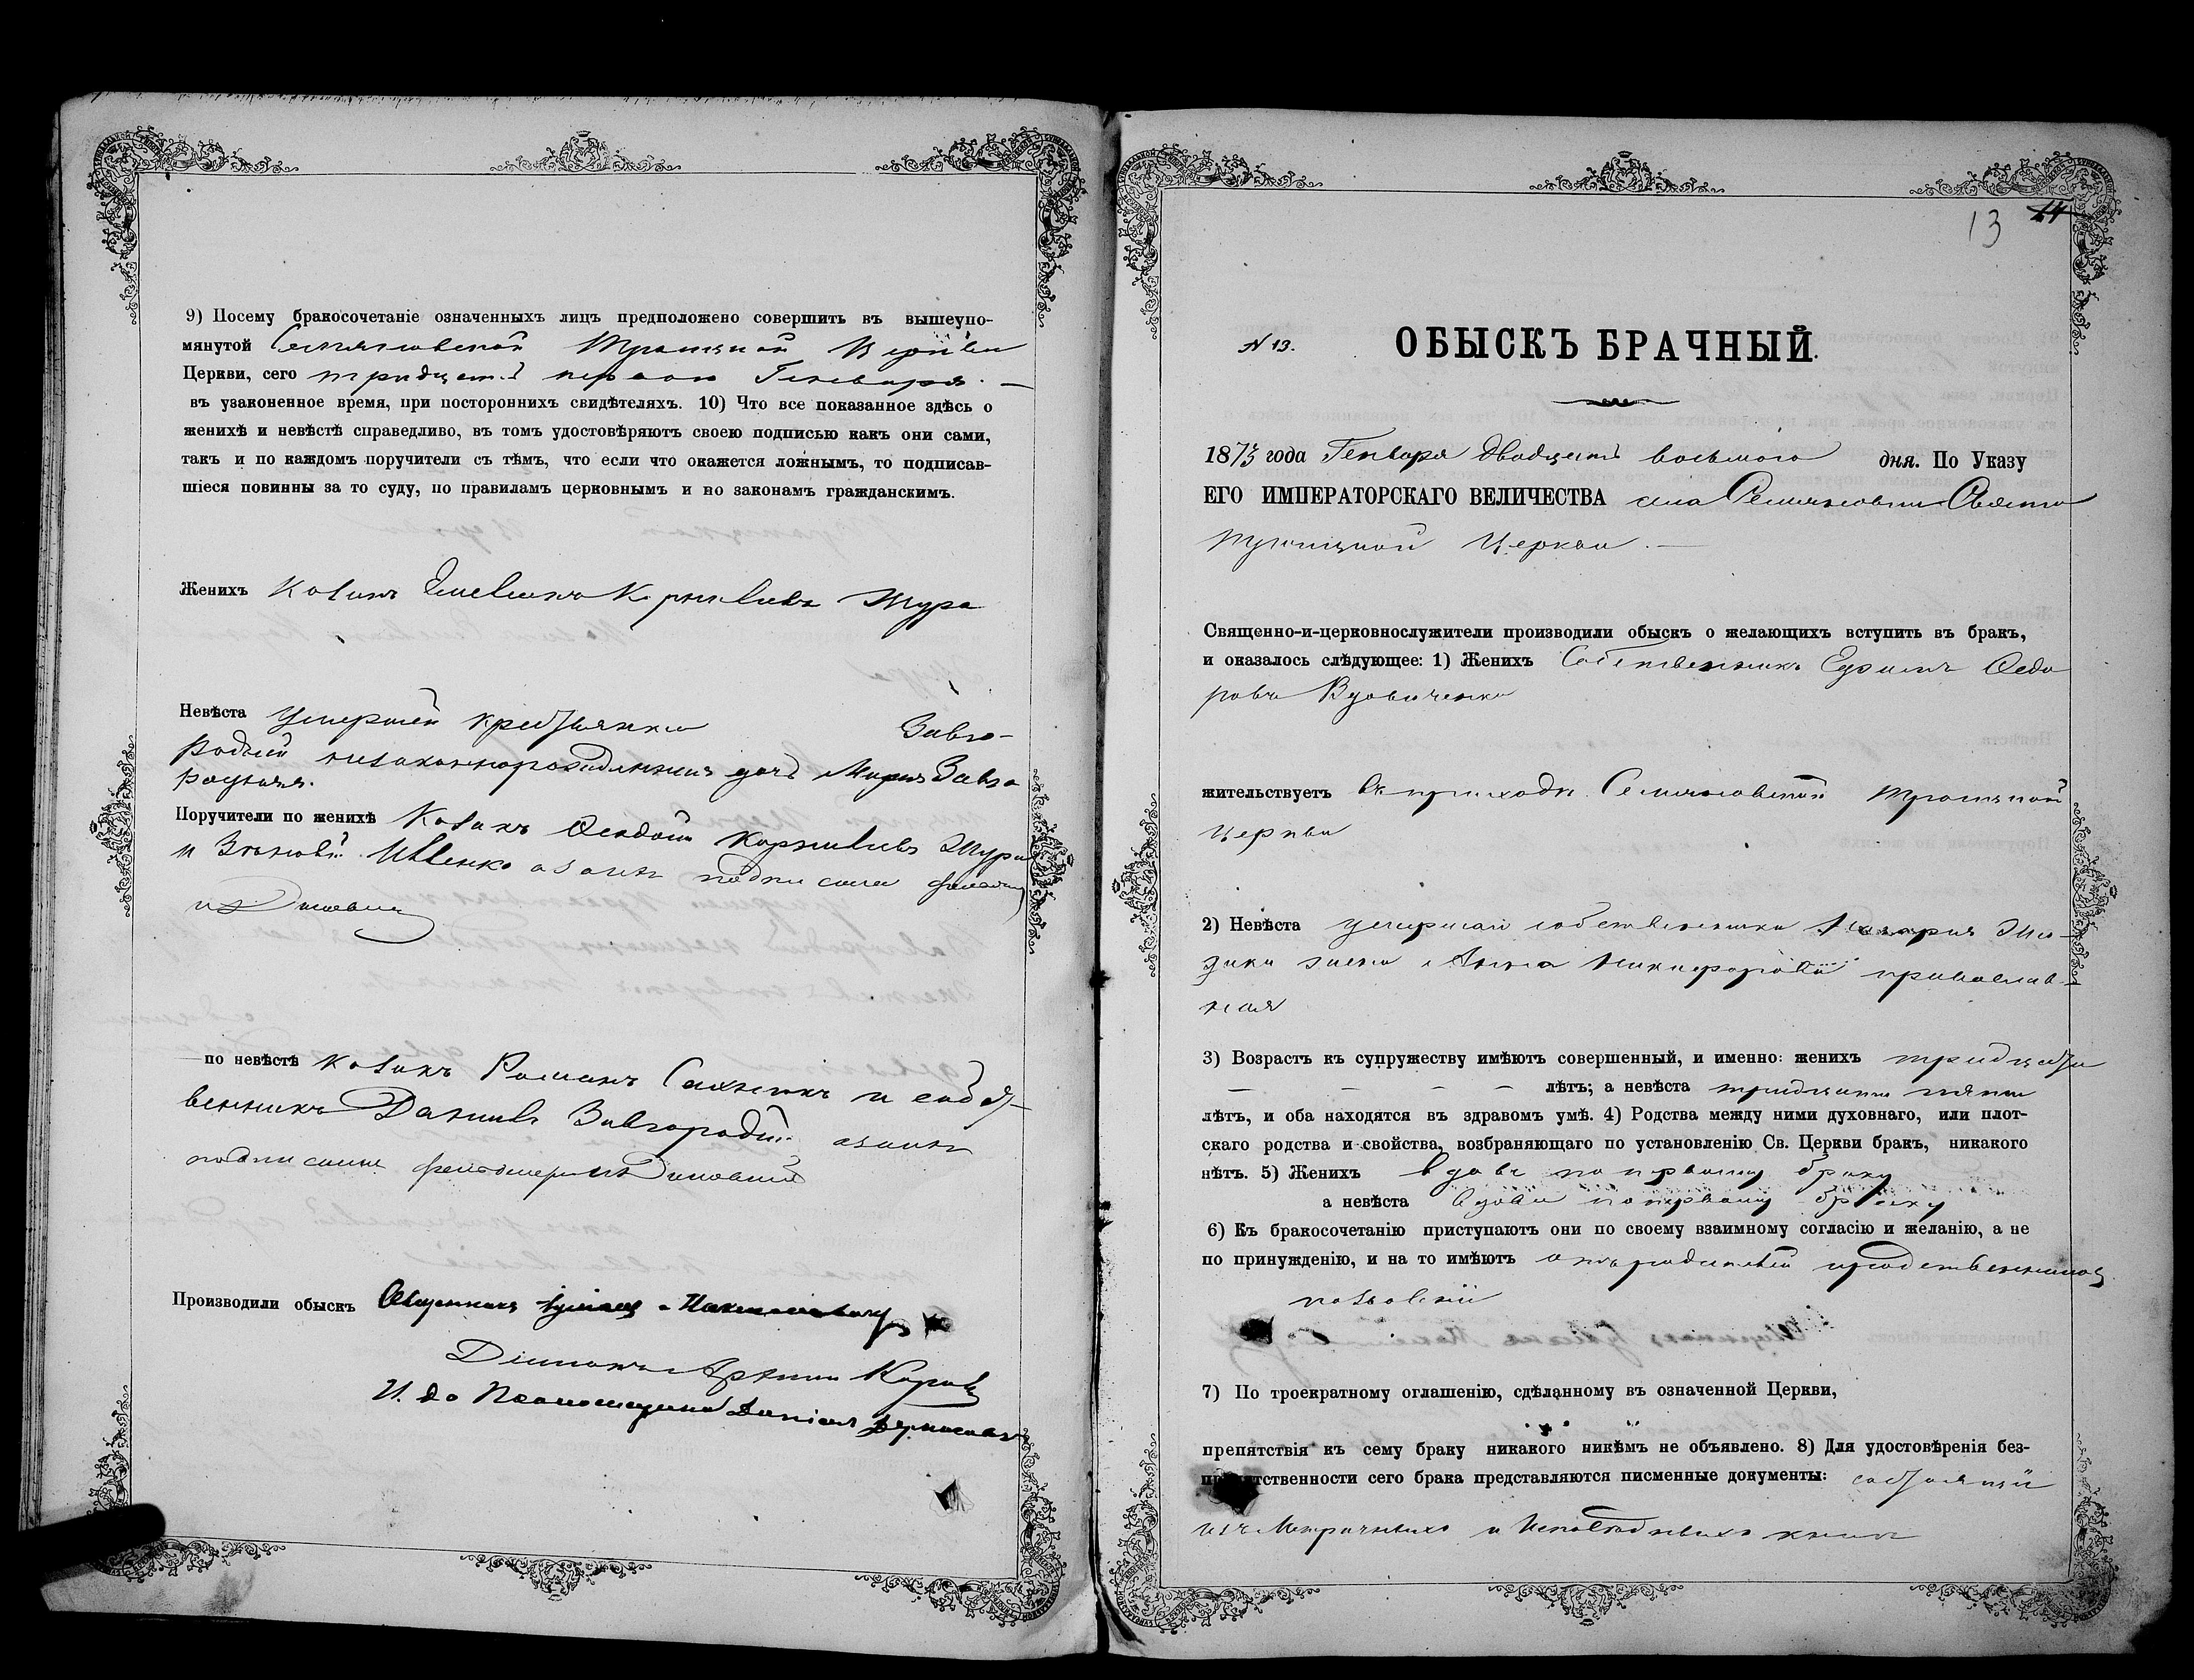 9) Посему бракосочетаніе означенныхъ лицъ предположено совершить въ вышеупо-
мянутой Семяновской Троицкой Церкви
Церкви, сего тридцать перваго Генваря. —
въ узаконенное время, при постороннихъ свидѣтеляхъ. 10) Что все показанное здѣсь о
женихѣ и невѣстѣ справедливо, въ томъ удостовѣряютъ своею подписью какъ они сами,
такъ и по каждомъ поручители съ тѣмъ, что если что окажется ложнымъ, то подписав-
шіеся повинны за то суду, по правиламъ церковнымъ и по законамъ гражданскимъ.
Женихъ Козакъ Корнѣевъ
Невѣста Умершей крестьянки Завго-
родней незаконнорожденная дочь Марія Завго
родняя.
Поручители по женихѣ Козакъ Корніевъ
и Зѣновій Ивенко а за нихъ подписался
по невѣстѣ козакъ Романъ и собст-
венникъ Даніилъ Завгородній а за нихъ
подписался
Производили обыскъ Священникъ
Діаконъ
И. до Псаломщика
13 14
N 13. ОБЫСКЪ БРАЧНЫЙ.
1873 года Генваря двадцать восьмого дня. По Указу
ЕГО ИМПЕРАТОРСКАГО ВЕЛИЧЕСТВА села Свято
Троицкой Церкви. —
Священно-и-церковнослужители производили обыскъ о желающихъ вступить въ бракъ,
и оказалось слѣдующее: 1) Женихъ Собственникъ Ефимъ Федо
ровъ Вдовиченко
жительствуетъ въ приходѣ Семяновской Троицкой
Церкви
2) Невѣста умершаго собственника
жена Анна Никифорова православ-
ная
3) Возрастъ къ супружеству имѣютъ совершенный, и именно: женихъ тридцати
— — — — лѣтъ; а невѣста тридцати пяти
лѣтъ, и оба находятся въ здравомъ умѣ. 4) Родства между ними духовнаго, или плот-
скаго родства и свойства, возбраняющаго по установленію Св. Церкви бракъ, никакого
нѣтъ. 5) Женихъ вдовъ по первому браку
а невѣста вдова по первому браку
6) Къ бракосочетанію приступаютъ они по своему взаимному согласію и желанію, а не
по принужденію, и на то имѣютъ отъ родителей и родственниковъ
позволеніе
7) По троекратному оглашенію, сдѣланному въ означенной Церкви,
препятствія къ сему браку никакого никѣмъ не объявлено. 8) Для удостовѣренія без-
пр тственности сего брака представляются писменные документы:
изъ Метричныхъ и Исповѣдныхъ книгъ